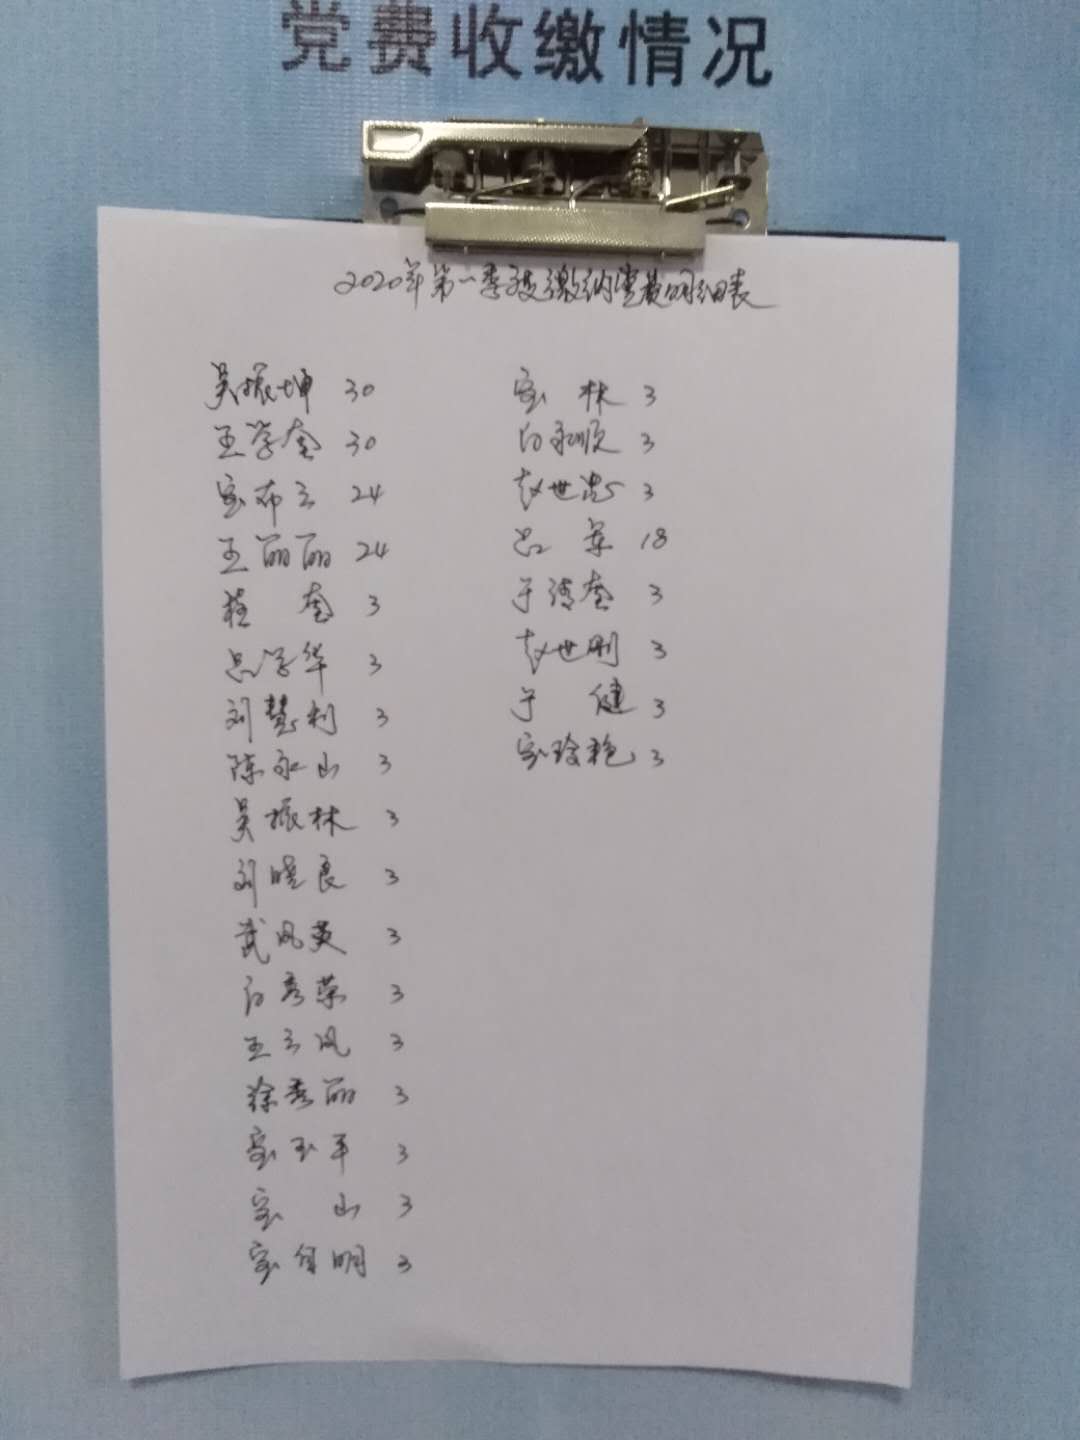 党费收缴情况
2020年第一季度缴纳党费明细表
吴振坤 30
王学奎 30
宝布云 24
王丽丽 24
桂奎 3
吕学华 3
刘慧利 3
陈永山 3
吴振林 3
刘晓良 3
武凤英 3
白秀荣 3
王云凤 3
徐秀丽 3
宝玉平 3
宝山 3
宝明 3
宝林 3
白永顺 3
赵世忠 3
吕军 18
于清奎 3
赵世刚 3
于健 3
宝玲艳 3